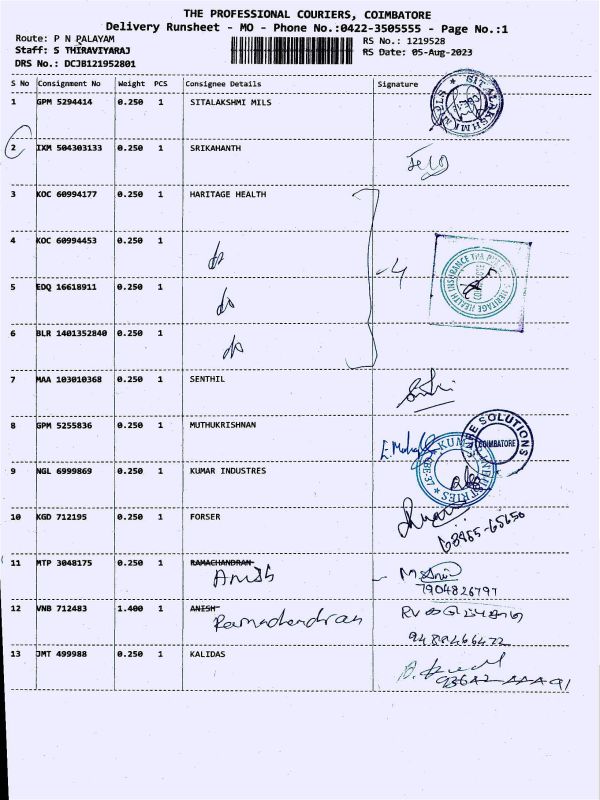 THE PROFESSIONAL COURIERS, COIMBATORE
Delivery Runsheet - MO - Phone No.:0422-3505555 - Page No.:1
Route: P N PALAYAM
RS No.: 1219528
Staff: S THIRAVIYARAJ
RS Date: 05-Aug-2023
DRS No.: DCJB121952801
S No Consignment No Weight PCS Consignee Details Signature
1 GPM 5294414 0.250 1 SITALAKSHMI MILS
2 IXM 504303133 0.250 1 SRIKAHANTH
3 KOC 60994177 0.250 1 HARITAGE HEALTH
4 KOC 60994453 0.250 1 do
-4
5 EDQ 16618911 0.250 1 do
6 BLR 1401352840 0.250 1 do
7 MAA 103010368 0.250 1 SENTHIL
8 GPM 5255836 0.250 1 MUTHUKRISHNAN
SOLUTIONS
COIMBATORE
9 NGL 6999869 0.250 1 KUMAR INDUSTRES
10 KGD 712195 0.250 1 FORSER
11 MTP 3048175 0.250 1 RAMACHANDRAN
Anish
7904826797
12 VNB 712483 1.400 1 ANISH
Ramachandran
9489466472
13 JMT 499988 0.250 1 KALIDAS